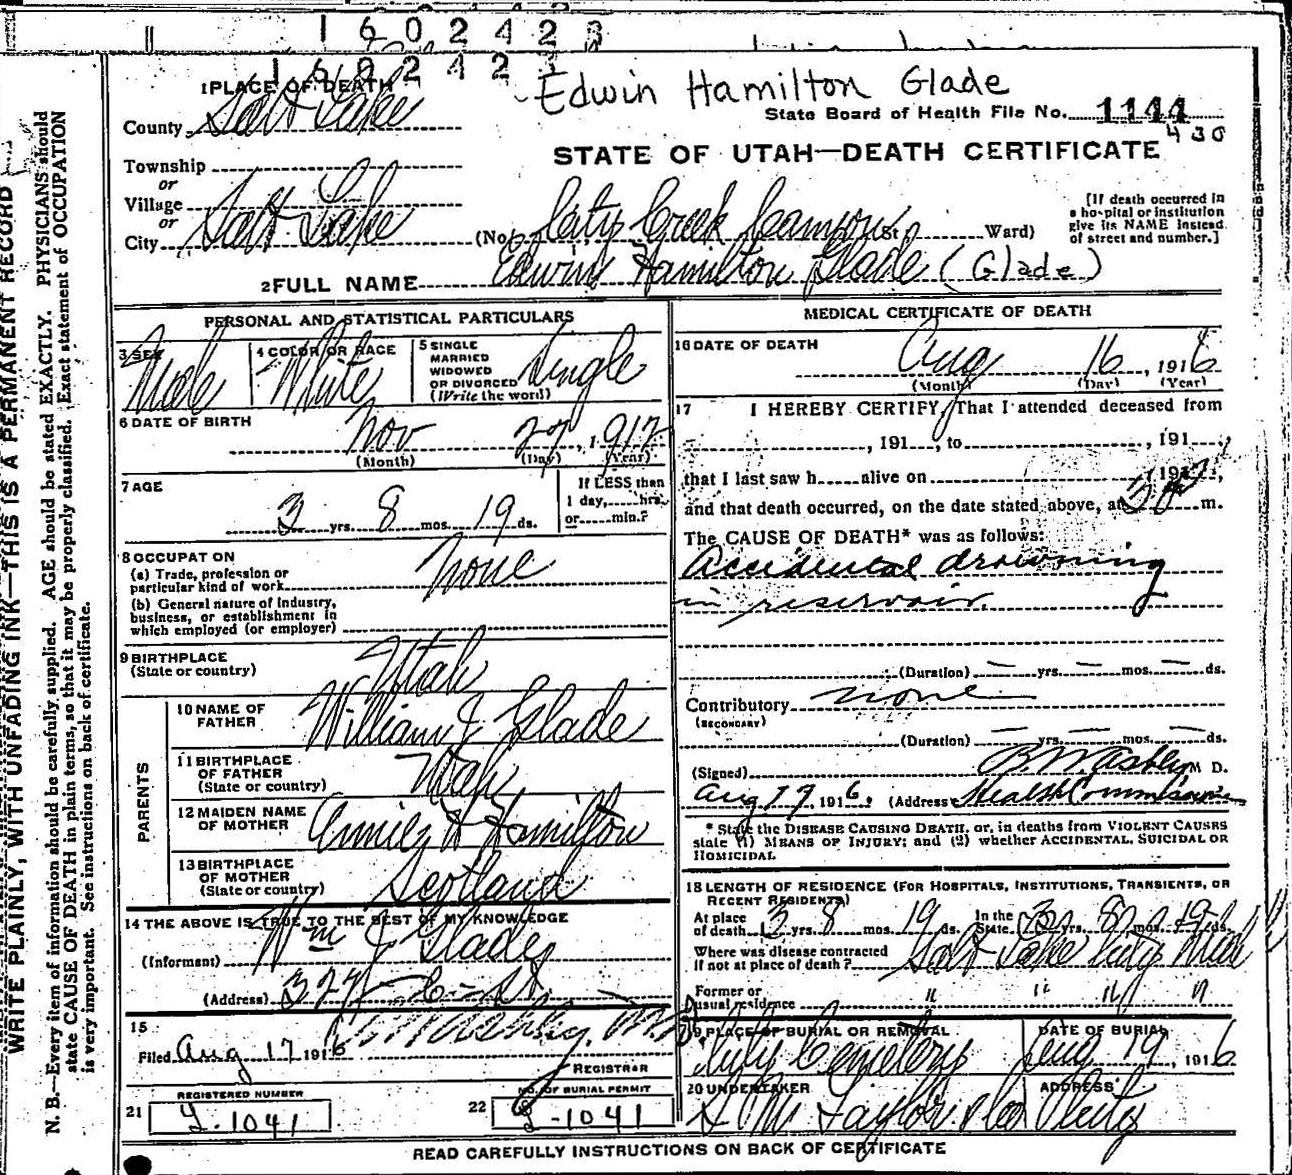 1602423
1602423
Edwin Hamilton Glade
1 PLACE OF DEATH
State Board of Health File No. 1144
430
County Salt Lake
STATE OF UTAH—DEATH CERTIFICATE
Township
or
Village
or
City Salt Lake
(No. City Creek Canyon St. Ward)
[If death occurred in
a hospital or institution
give its NAME instead
of street and number.]
2 FULL NAME Edwin Hamilton Glade (Glade)
PERSONAL AND STATISTICAL PARTICULARS
3 SEX Male
4 COLOR OR RACE White
5 SINGLE
MARRIED
WIDOWED
OR DIVORCED
(Write the word) Single
6 DATE OF BIRTH Nov 27, 1912
(Month) (Day) (Year)
7 AGE
3 yrs. 8 mos. 19 ds.
If LESS than
1 day, hrs.
or min.?
8 OCCUPATION
(a) Trade, profession or
particular kind of work None
(b) General nature of Industry,
business, or establishment in
which employed (or employer)
9 BIRTHPLACE
(State or country) Utah
PARENTS
10 NAME OF
FATHER William J Glade
11 BIRTHPLACE
OF FATHER
(State or country) Utah
12 MAIDEN NAME
OF MOTHER Annie Hamilton
13 BIRTHPLACE
OF MOTHER
(State or country) Scotland
14 THE ABOVE IS TRUE TO THE BEST OF MY KNOWLEDGE
(Informant) Wm J Glade
(Address) 327
15
Filed Aug 17 1916
REGISTRAR
REGISTERED NUMBER
21 1041
NO. OF BURIAL PERMIT
22 1041
MEDICAL CERTIFICATE OF DEATH
16 DATE OF DEATH
Aug 16, 1916
(Month) (Day) (Year)
17 I HEREBY CERTIFY, That I attended deceased from
, 191 , to , 191 ,
that I last saw h alive on , 191 ,
and that death occurred, on the date stated above, at m.
The CAUSE OF DEATH* was as follows:
Accidental drowning
in reservoir.
(Duration) — yrs. — mos. — ds.
Contributory none
(SECONDARY)
(Duration) — yrs. — mos. — ds.
(Signed) M D.
Aug 17, 1916. (Address) Health Commissioner
* State the DISEASE CAUSING DEATH, or, in deaths from VIOLENT CAUSES
state (1) MEANS OF INJURY; and (2) whether ACCIDENTAL, SUICIDAL OR
HOMICIDAL
18 LENGTH OF RESIDENCE (FOR HOSPITALS, INSTITUTIONS, TRANSIENTS, OR
RECENT RESIDENTS)
At place
of death 3 yrs. 8 mos. 19 ds. In the
State 3 yrs. 8 mos. 19 ds.
Where was disease contracted
if not at place of death? Salt Lake City Utah
Former or
usual residence " " " "
19 PLACE OF BURIAL OR REMOVAL
City Cemetery
DATE OF BURIAL
Aug 19, 1916
20 UNDERTAKER
S M Taylor & Co
ADDRESS
City
READ CAREFULLY INSTRUCTIONS ON BACK OF CERTIFICATE
WRITE PLAINLY, WITH UNFADING INK—THIS IS A PERMANENT RECORD
N. B.—Every item of information should be carefully supplied. AGE should be stated EXACTLY. PHYSICIANS should
state CAUSE OF DEATH in plain terms, so that it may be properly classified. Exact statement of OCCUPATION
is very important. See instructions on back of certificate.